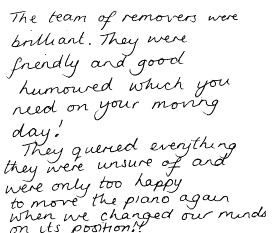 The team of removers were
brilliant. They were
friendly and good
humoured which you
need on your moving
day!
They queried everything
they were unsure of and
were only too happy
to move the piano again
when we changed our minds
on its position!!